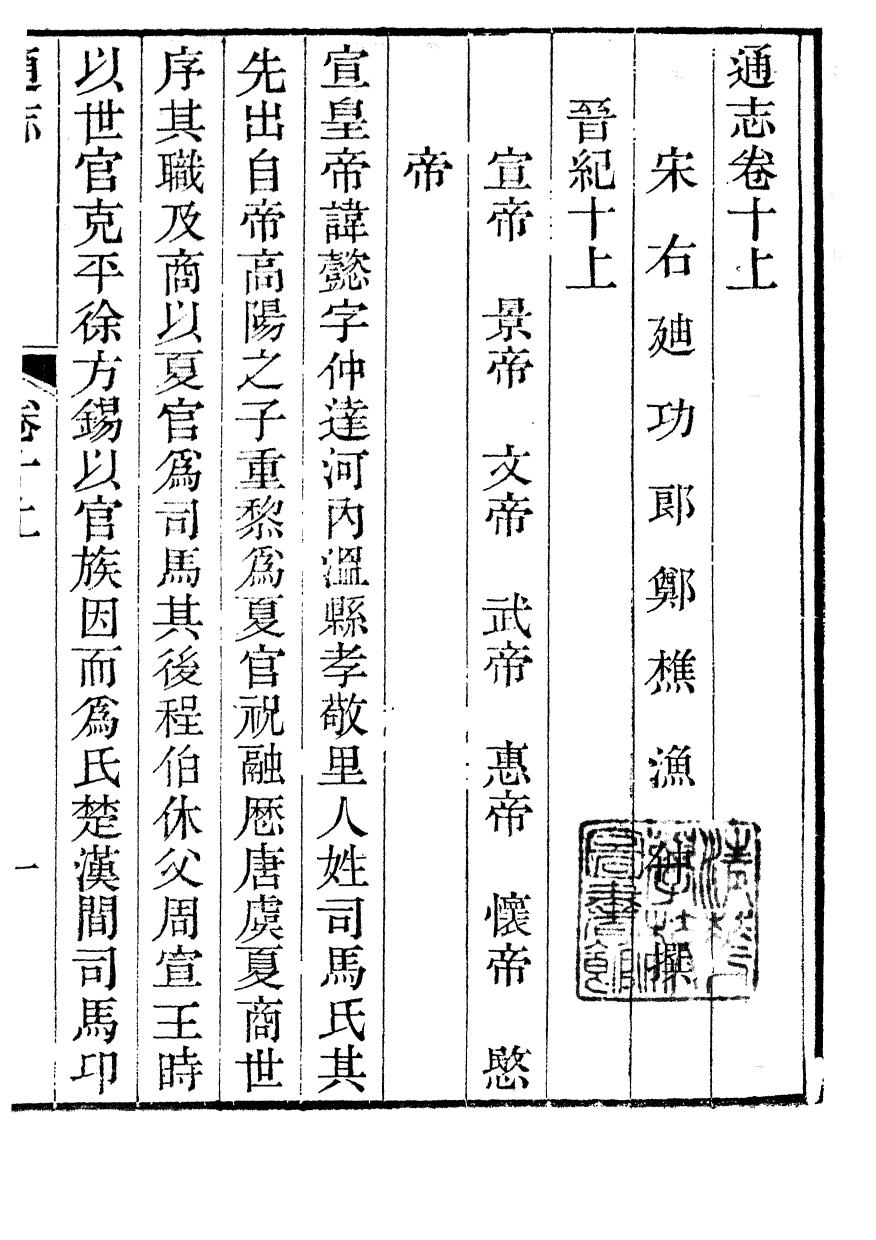 通志卷十上
宋右廸功郎鄭樵漁仲撰
晉紀十上
宣帝 景帝 文帝 武帝 惠帝 懷帝 愍
帝
宣皇帝諱懿字仲達河內溫縣孝敬里人姓司馬氏其
先出自帝高陽之子重黎爲夏官祝融歷唐虞夏商世
序其職及商以夏官爲司馬其後程伯休父周宣王時
以世官克平徐方錫以官族因而爲氏楚漢間司馬卬
通志 卷十上 一